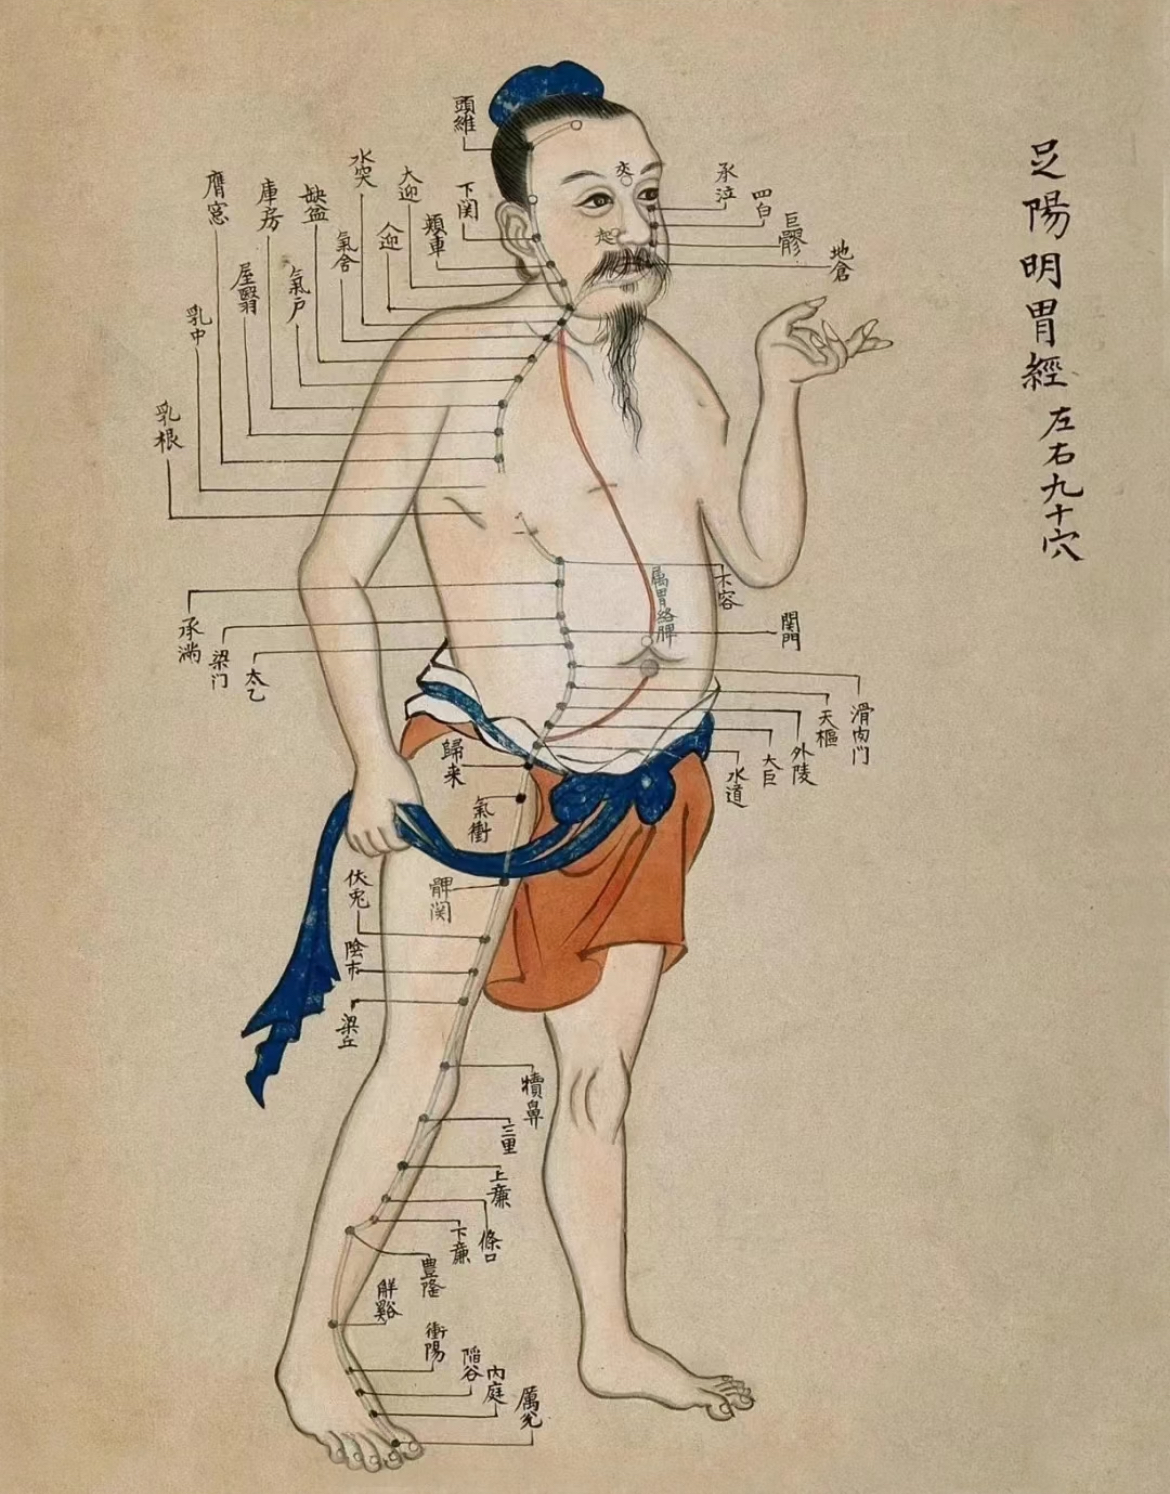 足陽明胃經
左右九十穴
頭維
下関
頬車
大迎
人迎
水突
氣舎
缺盆
氣戸
庫房
屋翳
膺窓
乳中
乳根
承泣
四白
巨髎
地倉
交
起
不容
属胃絡脾
関門
承満
梁门
太乙
滑肉门
天樞
外陵
大巨
水道
歸来
氣衝
髀関
伏兎
陰市
梁丘
犢鼻
三里
上廉
條口
下廉
豊隆
解谿
衝陽
陥谷
内庭
厲兌